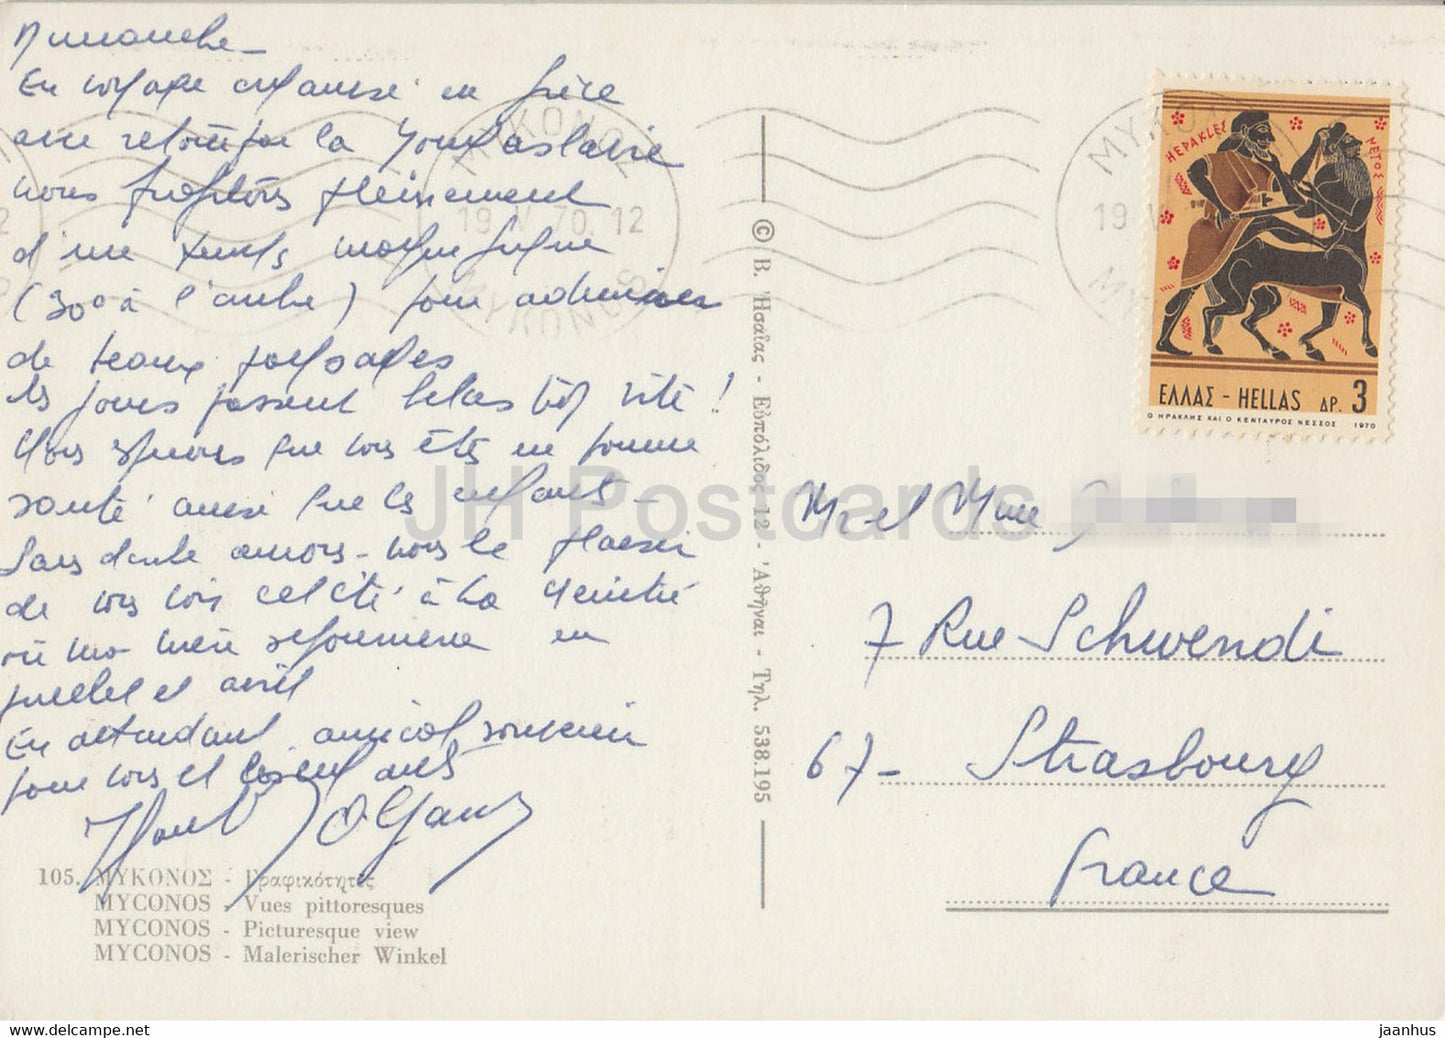 Dimanche
En voyage organisé en Grèce
avec retour par la Yougoslavie
nous profitons pleinement
d'un temps magnifique
(30° à l'aube) pour admirer
de beaux paysages
les jours passent hélas trop vite!
Nous espérons que vous êtes en bonne
santé ainsi que les enfants -
Sans doute aurons-nous le plaisir
de vous voir cet été à La
où ma mère séjournera en
juillet et août
En attendant amical souvenir
pour vous et les enfants
105. ΜΥΚΟΝΟΣ - Γραφικότητες
MYCONOS - Vues pittoresques
MYCONOS - Picturesque view
MYCONOS - Malerischer Winkel
© Β. Ἠσαΐας - Εὐπόλιδος 12 - Ἀθῆναι - Τηλ. 538.195
MYKONOS
19 V 70. 12
MYKONOS
MYKONOS
19 V
ΗΕΡΑΚLΕΣ
ΝΕΤΟΣ
ΕΛΛΑΣ - HELLAS ΔΡ. 3
Ο ΗΡΑΚΛΗΣ ΚΑΙ Ο ΚΕΝΤΑΥΡΟΣ ΝΕΣΣΟΣ 1970
Mr et Mme
7 Rue Schwendi
67 - Strasbourg
France
JH Postcards
www.delcampe.net
jaanhus